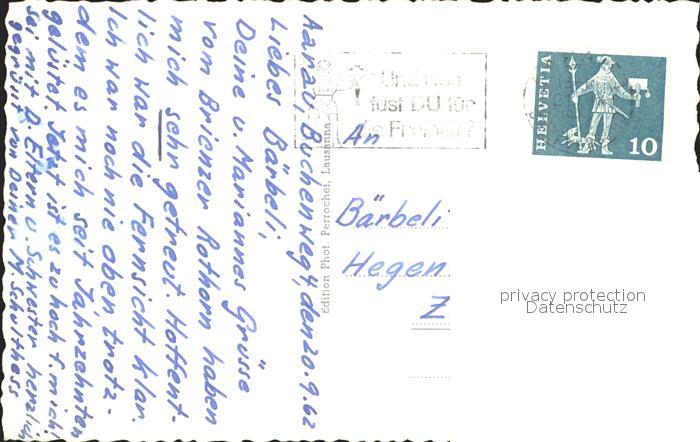 Aarau, Buchenweg 4, den 20.9.62
Liebes Bärbeli,
Deine u. Mariannes Grüsse
vom Brienzer Rothorn haben
mich sehr gefreut. Hoffent-
lich war die Fernsicht klar.
Ich war noch nie oben trotz-
dem es mich seit Jahrzehnten
gelüstet. Jetzt ist es zu hoch f. mich!
Sei mit D. Eltern u. Schwester herzlich
gegrüsst von Deinem
Edition Phot. Perrochet, Lausanne
Und was
tust DU für
die Freiheit?
HELVETIA
10
An
Bärbeli
Hegen
Z
privacy protection
Datenschutz